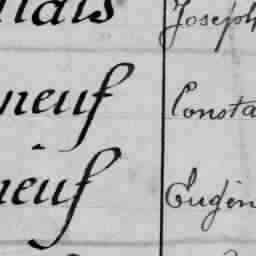 ndais Joseph
neuf Consta
neuf Eugèn